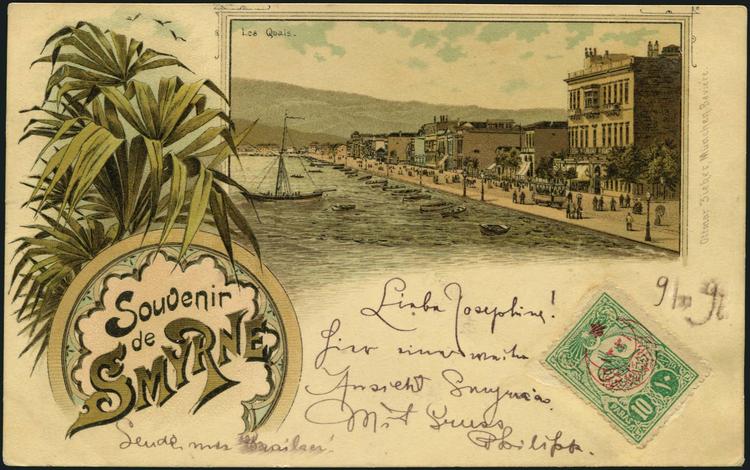 Les Quais.
Ottmar Zieher, München, Bavière
Souvenir
de
SMYRNE
Liebe Josephine!
hier eine weite
Ansicht Smyrnas.
Mit Gruss
Philipp.
Sende mir
10
PARAS
١٠